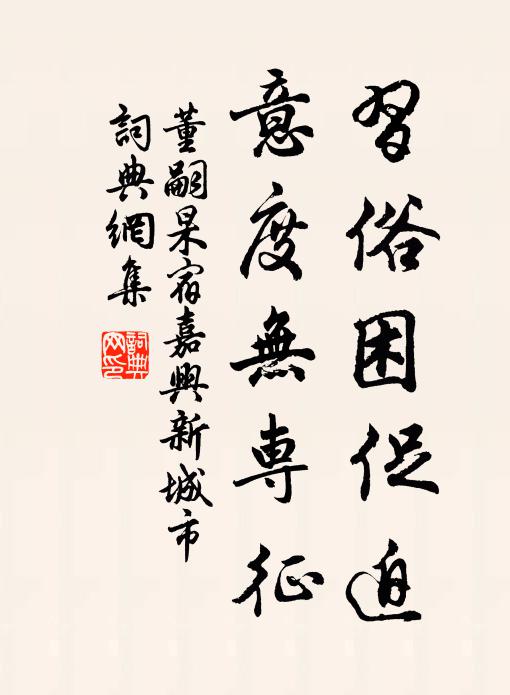 習俗困促迫
意度無専征
董嗣杲宿嘉興新城市
詞典網集
詞典網印